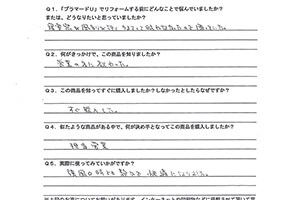 Q1.「プラマードU」でリフォームする前にどんなことで悩んでいましたか?
または、どうなりたいと思っていましたか?
Q2. 何がきっかけで、この商品を知りましたか?
営業の方に教わった。
Q3. この商品を知ってすぐに購入しましたか?しなかったとしたらなぜですか?
すぐ購入した。
Q4. 似たような商品がある中で、何が決め手となってこの商品を購入しましたか?
担当営業
Q5. 実際に使ってみていかがですか?
強風の時も静かで快適になりました。